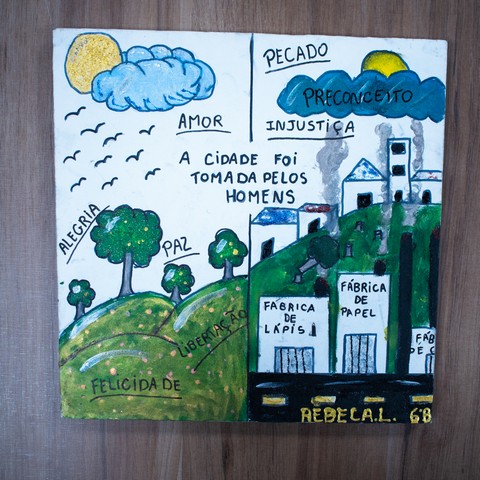 PECADO
PRECONCEITO
AMOR
INJUSTIÇA
A CIDADE FOI
TOMADA PELOS
HOMENS
ALEGRIA
PAZ
LIBERTAÇÃO
FELICIDADE
FÁBRICA
DE
LÁPIS
FÁBRICA
DE
PAPEL
FÁB
DE C
REBECA.L. 6ºB